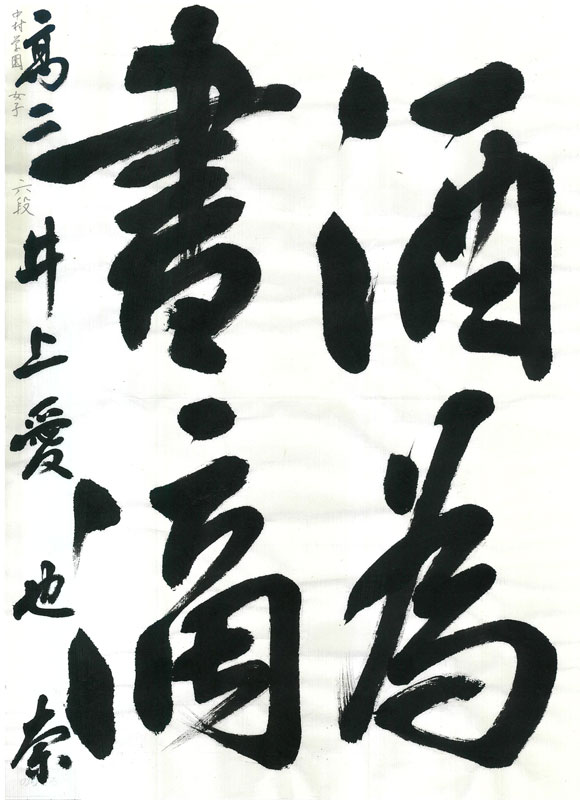 酒為
書滴
高二 井上愛也奈
中村学園女子 六段